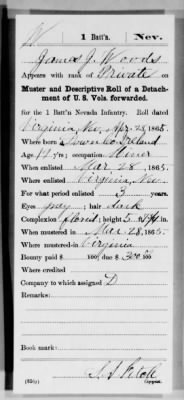 W | 1 Batt'n. | Nev.
James J. Woods
Appears with rank of Private on
Muster and Descriptive Roll of a Detach-
ment of U. S. Vols. forwarded.
for the 1 Batt'n Nevada Infantry. Roll dated
Virginia, Nev, Apr 25, 1865.
Where born Ireland
Age yrs.; occupation Miner
When enlisted Mar 28, 1865.
Where enlisted Virginia, Nev
For what period enlisted 3 years.
Eyes gray; hair dark
Complexion florid; height 5 ft. in.
When mustered in Mar 28, 1865.
Where mustered in Virginia
Bounty paid $ 100; due $ 300 100
Where credited
Company to which assigned D
Remarks:
Book mark:
Copyist.